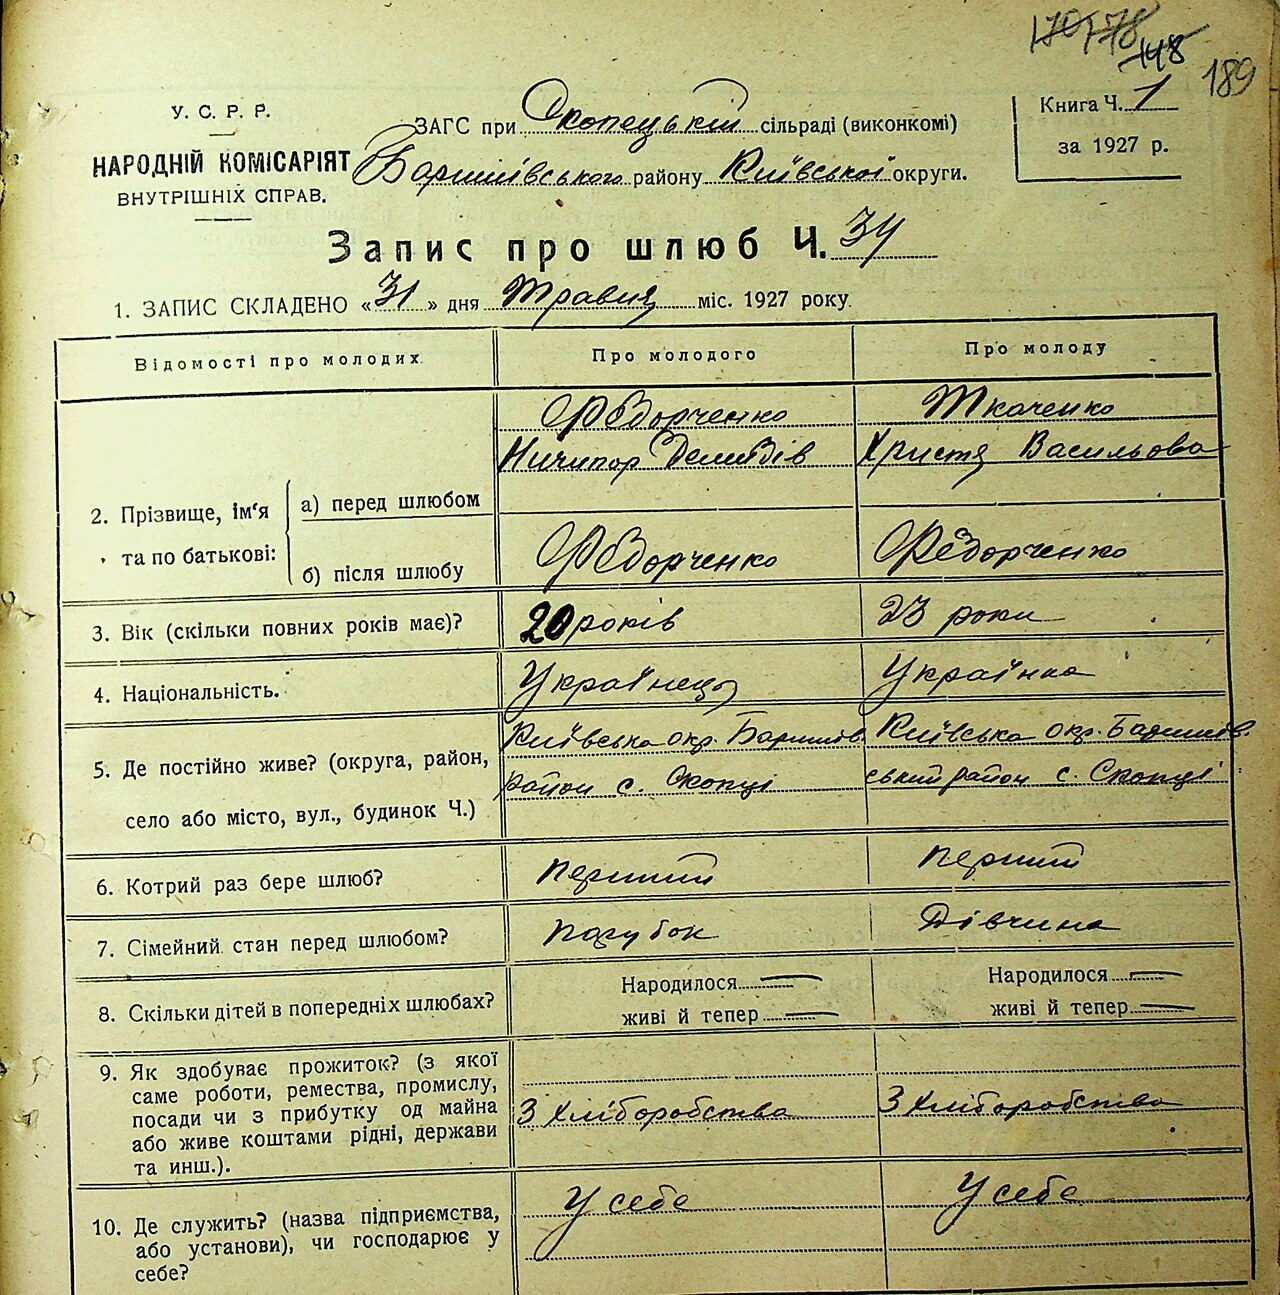 170 178
148
189
У. С. Р. Р.
НАРОДНІЙ КОМІСАРІЯТ
ВНУТРІШНІХ СПРАВ.
ЗАГС при Скопецькій сільраді (виконкомі)
Баришівського району Київської округи.
Книга Ч. 1
за 1927 р.
Запис про шлюб Ч. 34
1. ЗАПИС СКЛАДЕНО «31» дня Травня міс. 1927 року.
Відомості про молодих. Про молодого Про молоду
2. Прізвище, ім'я та по батькові:
а) перед шлюбом
Федорченко Ткаченко
Ничипор Демидів Христя Васильова
б) після шлюбу
Федорченко Федорченко
3. Вік (скільки повних років має)? 20 років 23 роки
4. Національність. Українець Українка
5. Де постійно живе? (округа, район,
село або місто, вул., будинок Ч.)
Київська окр. Баришів.
район с. Скопці
Київська окр. Баришів
ський район с. Скопці
6. Котрий раз бере шлюб? перший перший
7. Сімейний стан перед шлюбом? парубок Дівчина
8. Скільки дітей в попередніх шлюбах?
Народилося — Народилося —
живі й тепер — живі й тепер —
9. Як здобуває прожиток? (з якої
саме роботи, ремества, промислу,
посади чи з прибутку од майна
або живе коштами рідні, держави
та инш.).
З хліборобства З хліборобства
10. Де служить? (назва підприємства,
або установи), чи господарює у
себе?
У себе У себе